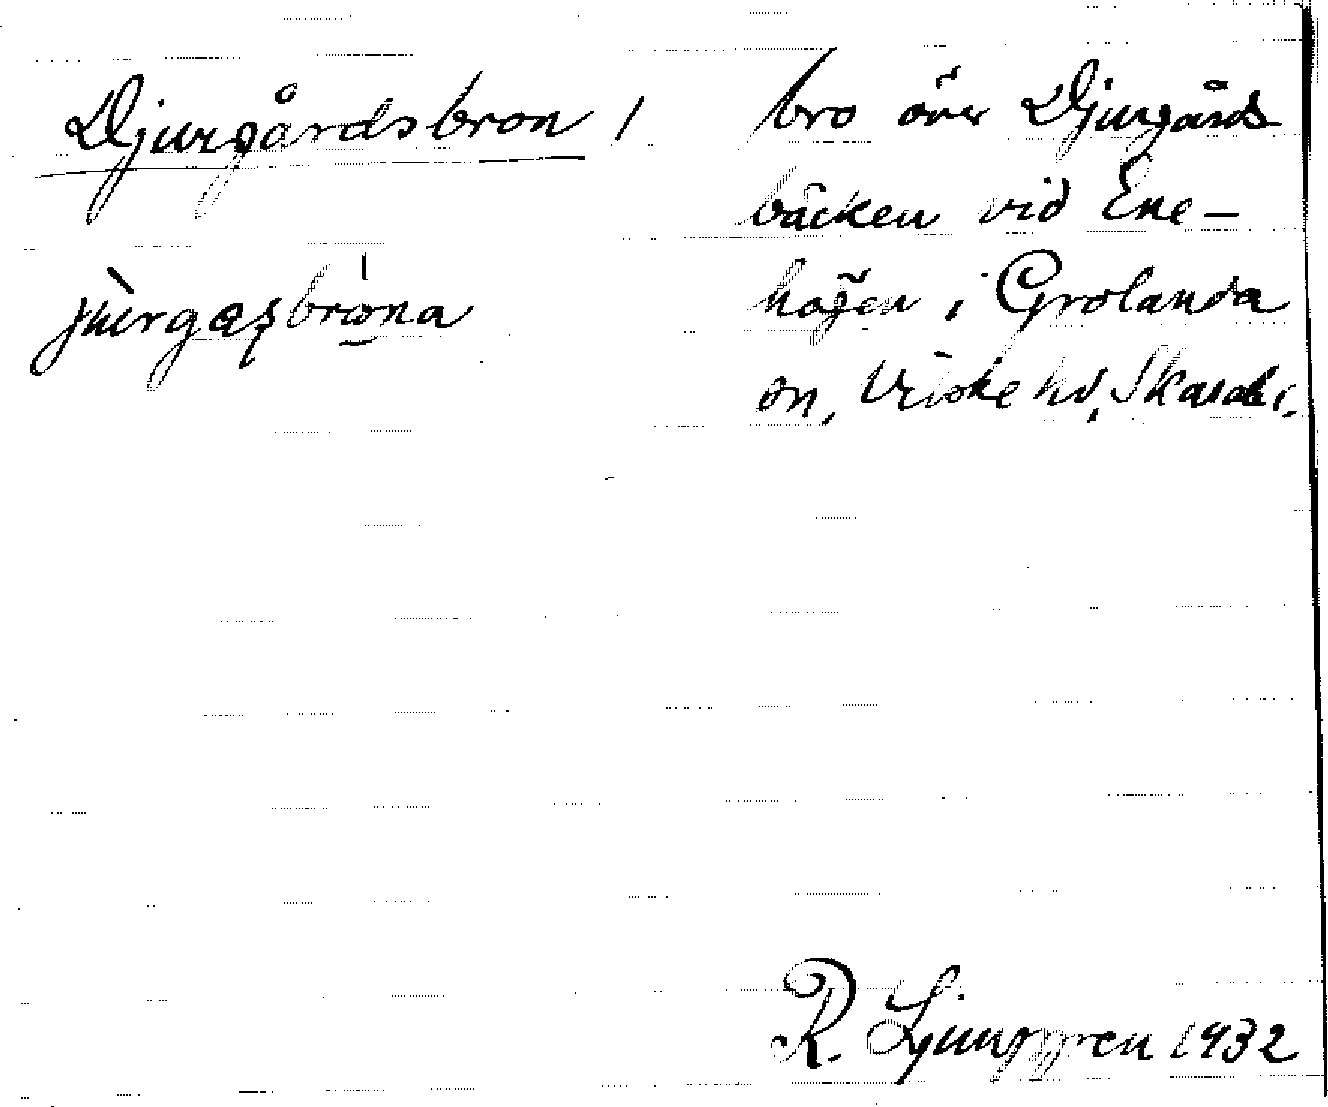 Djurgårdsbron /
jùrgasbrona
bro över Djurgårds
bäcken vid Ene-
högen i Grolanda
sn, Vilske hd, Skarab. l.
R. Ljunggren 1932